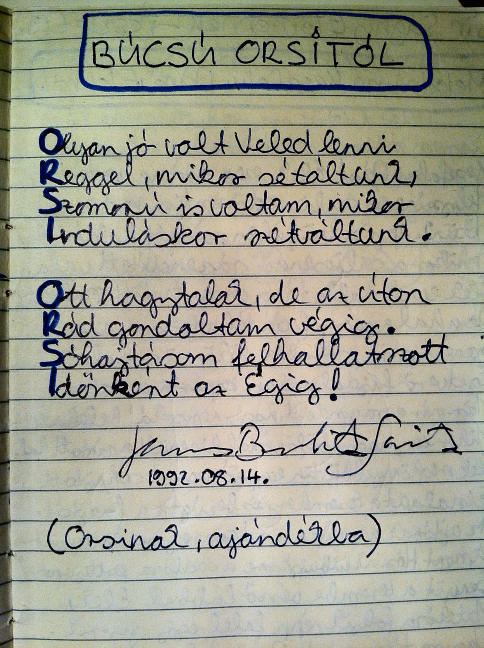 BÚCSÚ ORSITÓL
Olyan jó volt Veled lenni
Reggel, mikor sétáltunk,
Szomorú is voltam, mikor
Induláskor szétváltunk.
Ott hagytalak, de az úton
Rád gondoltam végig.
Sóhajtásom felhallatszott
Időnként az Égig!
1992.08.14.
(Orsinak, ajándékba)